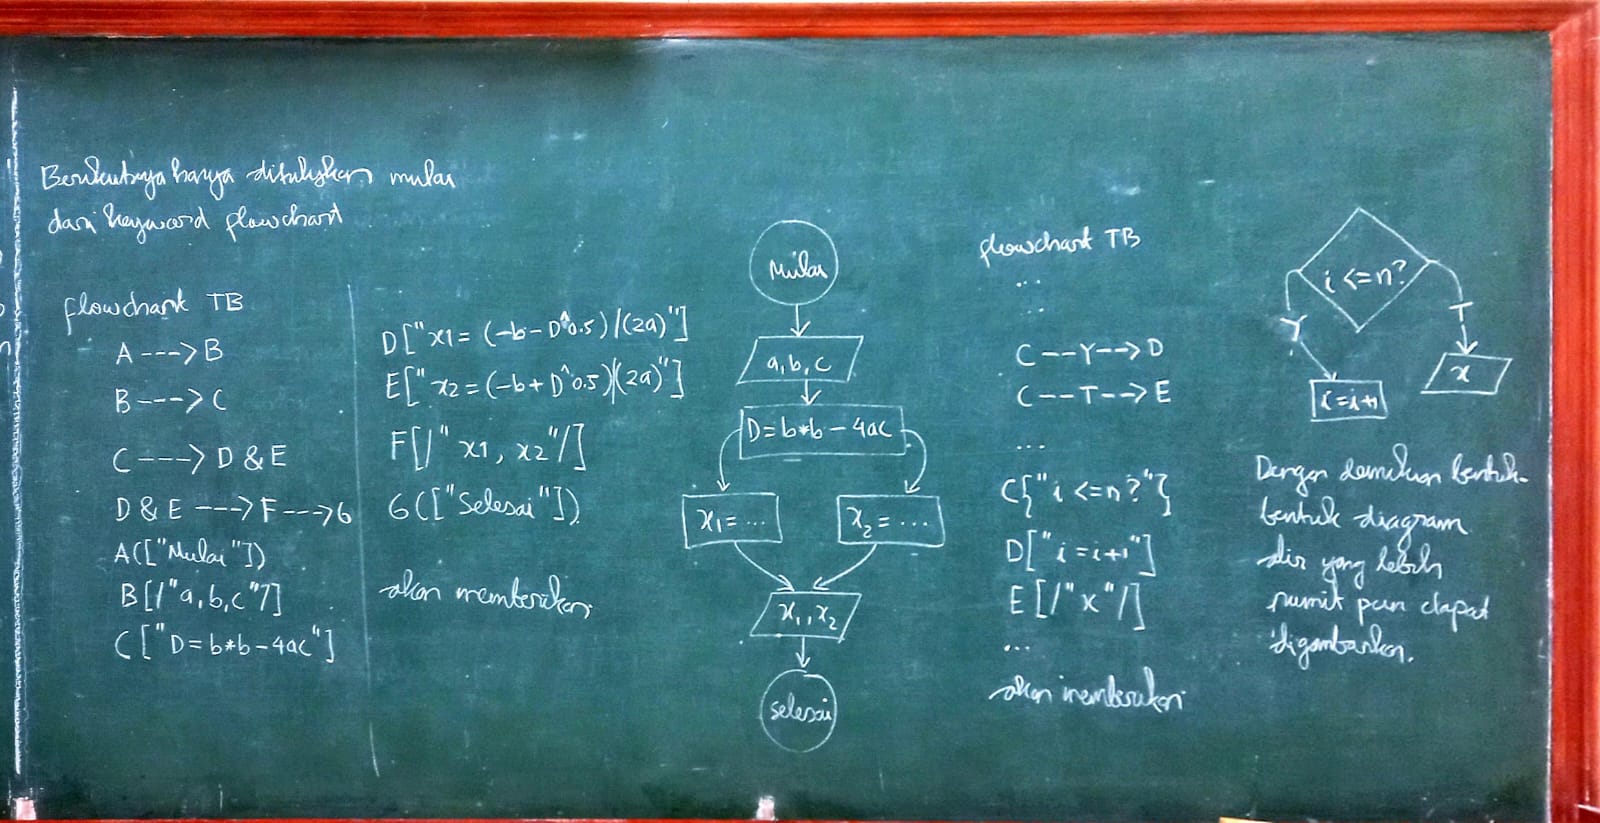 Berikutnya hanya dituliskan mulai
dari keyword flowchart
flowchart TB
A --->B
B --->C
C ---> D & E
D & E ---> F --->G
A(["Mulai"])
B[/"a,b,c"/]
C["D=b*b-4ac"]
D["x1=(-b-D^0.5)/(2a)"]
E["x2=(-b+D^0.5)/(2a)"]
F[/"x1, x2"/]
G(["Selesai"])
akan memberikan
Mulai
a,b,c
D=b*b-4ac
x1=...
x2=...
x1,x2
selesai
flowchart TB
...
...
C--Y-->D
C--T-->E
...
C{"i<=n?"}
D["i=i+1"]
E[/"x"/]
...
akan memberikan
i<=n?
Y
T
i=i+1
x
Dengan demikian bentuk-
bentuk diagram
alir yang lebih
rumit pun dapat
digambarkan.